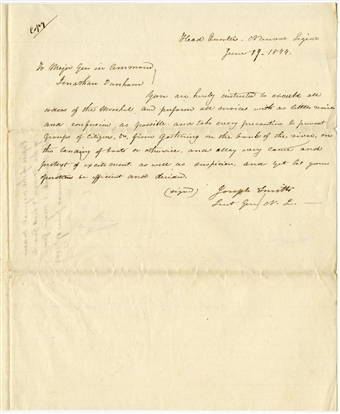 Copy
Head Quarters, Nauvoo Legion
June 17, 1844.
To Major Gen in Command
Jonathan Dunham
You are hereby instructed to execute all
orders of the Marshal and perform all services with as little noise
and confusion as possible and take every precaution to prevent
groups of citizens, &c, from gathering on the bank of the river, on
the landing of boats or otherwise, and allay every cause and
pretext of excitement as well as suspicion and yet let your
operations be efficient and decided.
(signed) Joseph Smith
Lieut Gen N. L.